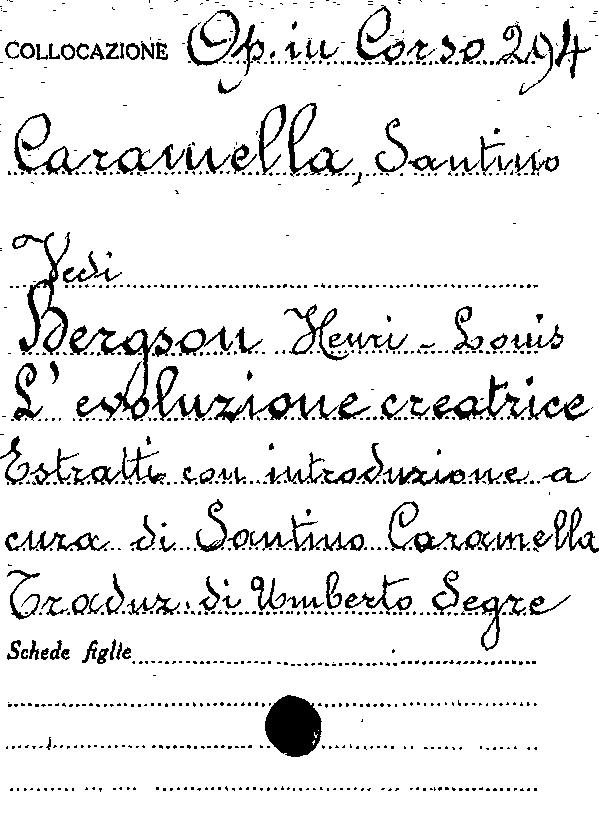 COLLOCAZIONE Op. in Corso 294
Caramella, Santino
Vedi
Bergson Henri - Louis
L' evoluzione creatrice
Estratti con introduzione a
cura di Santino Caramella
Traduz. di Umberto Segre
Schede figlie